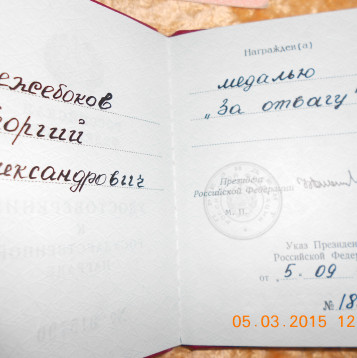 ежебоков
оргий
лександрович
Награжден(а)
медалью
„За отвагу"
Президент
Российской Федерации
М. П.
Указ Президен
Российской Федер
от 5.09
№ 18
05.03.2015 12